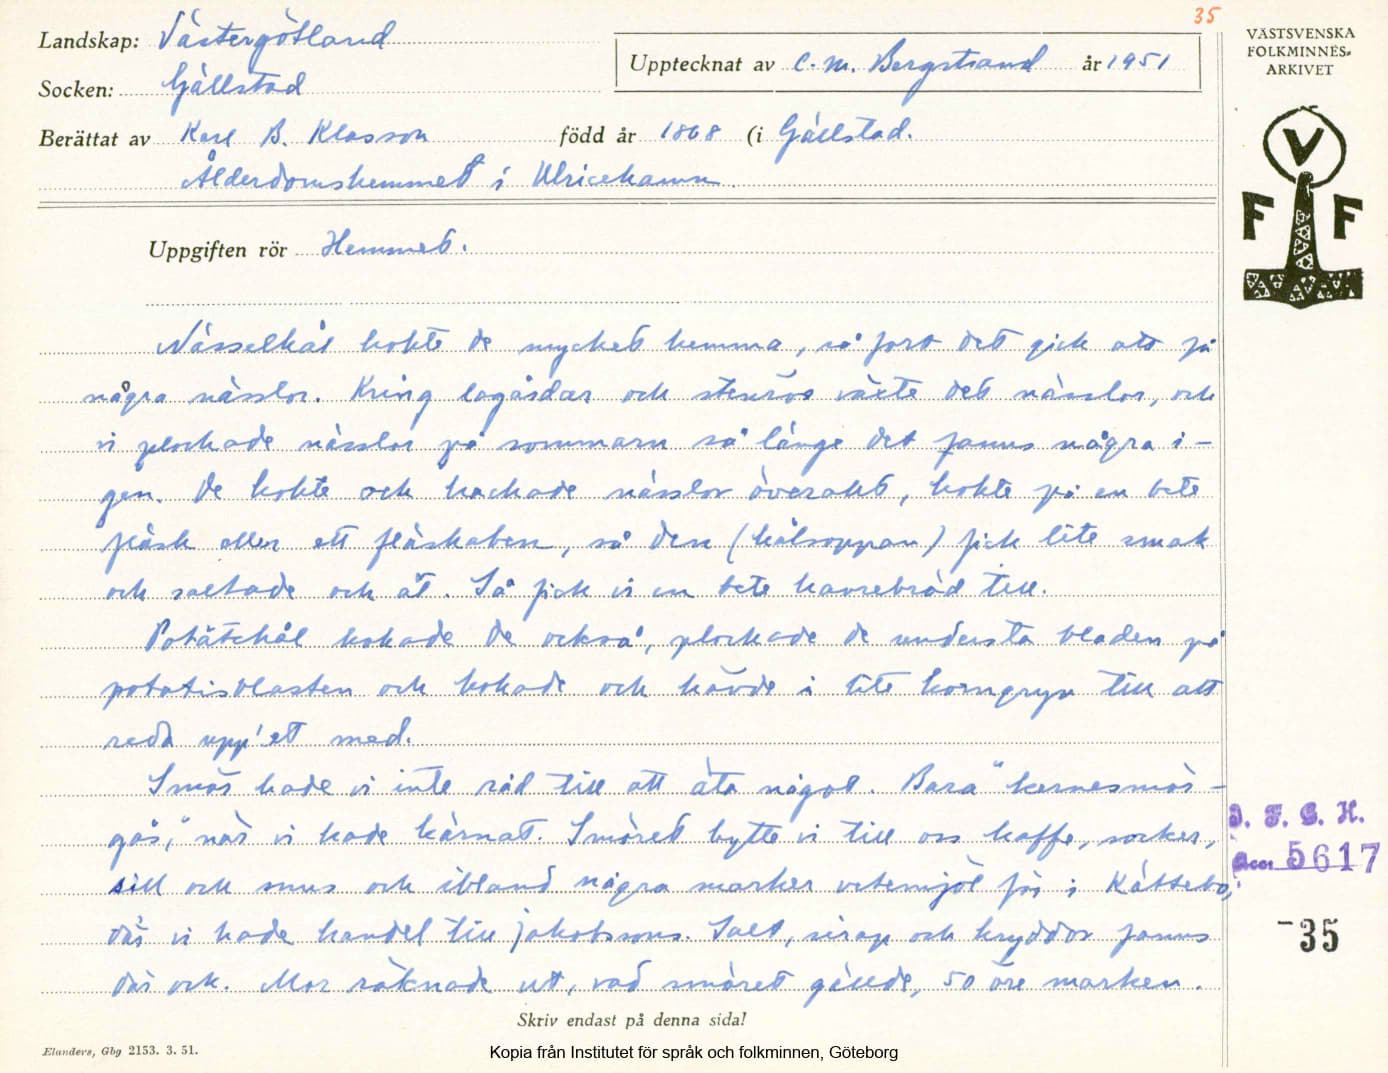 35
Landskap: Västergötland
VÄSTSVENSKA
FOLKMINNES-
ARKIVET
Upptecknat av C. M. Bergstrand år 1951
Socken: Gällstad
Berättat av Karl B. Klasson född år 1868 (i Gällstad.
Ålderdomshemmet i Ulricehamn.
V
F F
Uppgiften rör Hemmet.
Nässelkål kokte de mycket hemma, så fort det gick att få
några nässlor. Kring lagårdar och stenrös växte det nässlor, och
vi plockade nässlor på sommarn så länge det fanns några i-
gen. De kokte och hackade nässlor överallt, kokte på en bete
fläsk eller ett fläskaben, så den (kålsoppan) fick lite smak
och saltade och åt. Så fick vi en bete havrebröd till.
Potätekål kokade de också, plockade de understa bladen på
potatisblasten och kokade och hävde i lite korngryn till att
reda upp'et med.
Smör hade vi inte råd till att äta något. Bara "kernesmör-
gås," när vi hade kärnat. Smöret bytte vi till oss kaffe, socker,
sill och snus och ibland några marker vetemjöl för i Kättebo,
där vi hade handel till Jakobssons. Salt, sirap och kryddor fanns
där ock. Mor räknade ut, vad smöret gällde, 50 öre marken.
D. F. G. H.
Acc: 5617
-35
Skriv endast på denna sida!
Elanders, Gbg 2153. 3. 51.
Kopia från Institutet för språk och folkminnen, Göteborg